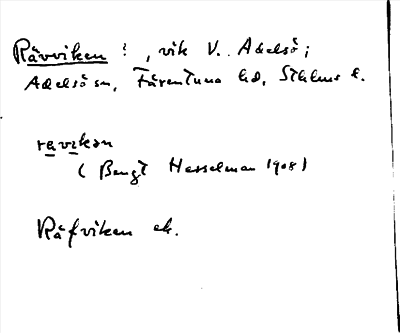 Rävviken : , vik V. Adelsö ;
Adelsö sn, Färentuna hd, Sthlms l.
ravikən
( Bengt Hesselman 1908 )
Räfviken ek.